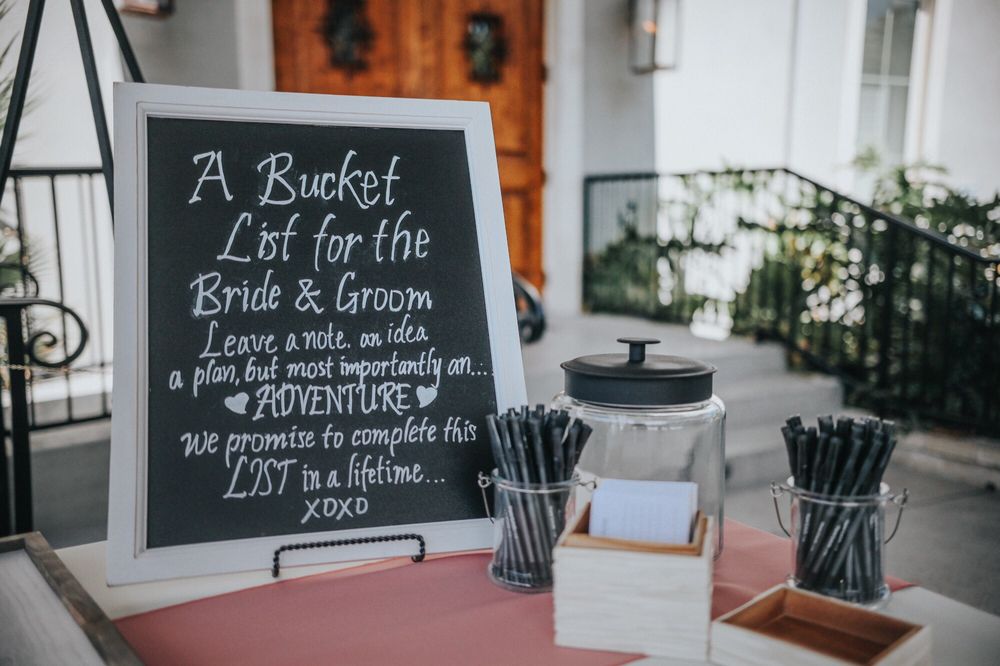 A Bucket
List for the
Bride & Groom
Leave a note. an idea
a plan, but most importantly an....
ADVENTURE
We promise to complete this
LIST in a lifetime...
XOXO